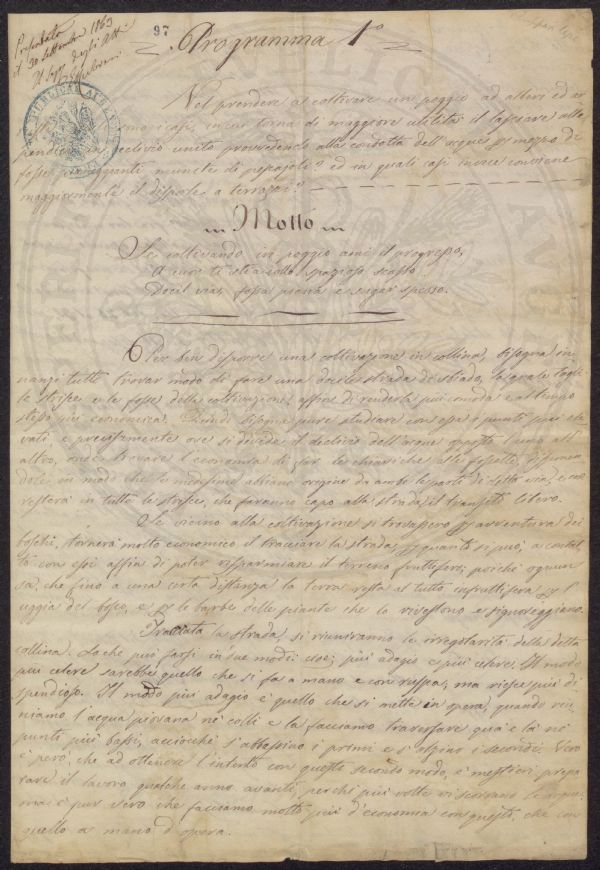 Presentato
il 30 Settembre 1863
degli Atti
97
Programma 1º
Nel prendere a coltivare un poggio ad alberi ed
casi, in cui torna di maggiore utilità il lasciare alla
pendice in declivio unito provvedendo alla condotta dell'acque pr mezzo di
fosse munite di ed in quali casi invece conviene
maggiormente il disporle a terrazzi?
Motto
Se coltivando in poggio ami il progresso,
A cuor ti stia collo spazioso scasso
Docil via, fossa piena e sugar spesso.
Per ben disporre una coltivazione in collina, bisogna in-
nanzi tutto trovar modo di fare una docile strada la quale tagli
le strisce e le fosse della coltivazione, affine di renderla più comoda e al tempo
stesso più economica. Quindi bisogna pure studiare con essa i punti più ele-
vati, e precisamente ove si divide il declivio dell'acque opposte l'uno all'
altro, onde trovare l'economia di far le chiaviche alle fossette,
dole in modo che le medesime abbiano origine da ambe le parti di detta via, e così
resterà in tutte le strisce, che faranno capo alla strada, il transito libero.
Se vicino alla coltivazione si trovassero pr avventura dei
boschi, tornerà molto economico il tracciare la strada, pr quanto si può, a contat-
to con essi affin di poter risparmiare il terreno fruttifero; poichè ognun
sa, che fino a una certa distanza la terra resta al tutto infruttifera pr l'
uggia del bosco, e pr le barbe delle piante che lo rivestono e signoreggiano.
Tracciata la strada, si riuniranno le irregolarità della detta
collina. Lo che può farsi in due modi: cioè; più adagio e più celere. Il modo
più celere sarebbe quello che si fa a mano e con ruspa, ma riesce più di-
spendioso. Il modo più adagio è quello che si mette in opera, quando riu-
niamo l'acqua piovana ne' colli e la facciamo traversare qua e là ne'
punti più bassi, acciocchè s'abbassino i primi e s'alzino i secondi. Vero
è però, che ad ottenere l'intento con questo secondo modo, è mestieri prepa-
rare il lavoro qualche anno avanti, perchè più volte vi scorrano le acque:
ma è pur vero che facciamo molto più d'economia con questo, che con
quello a mano d'opera.